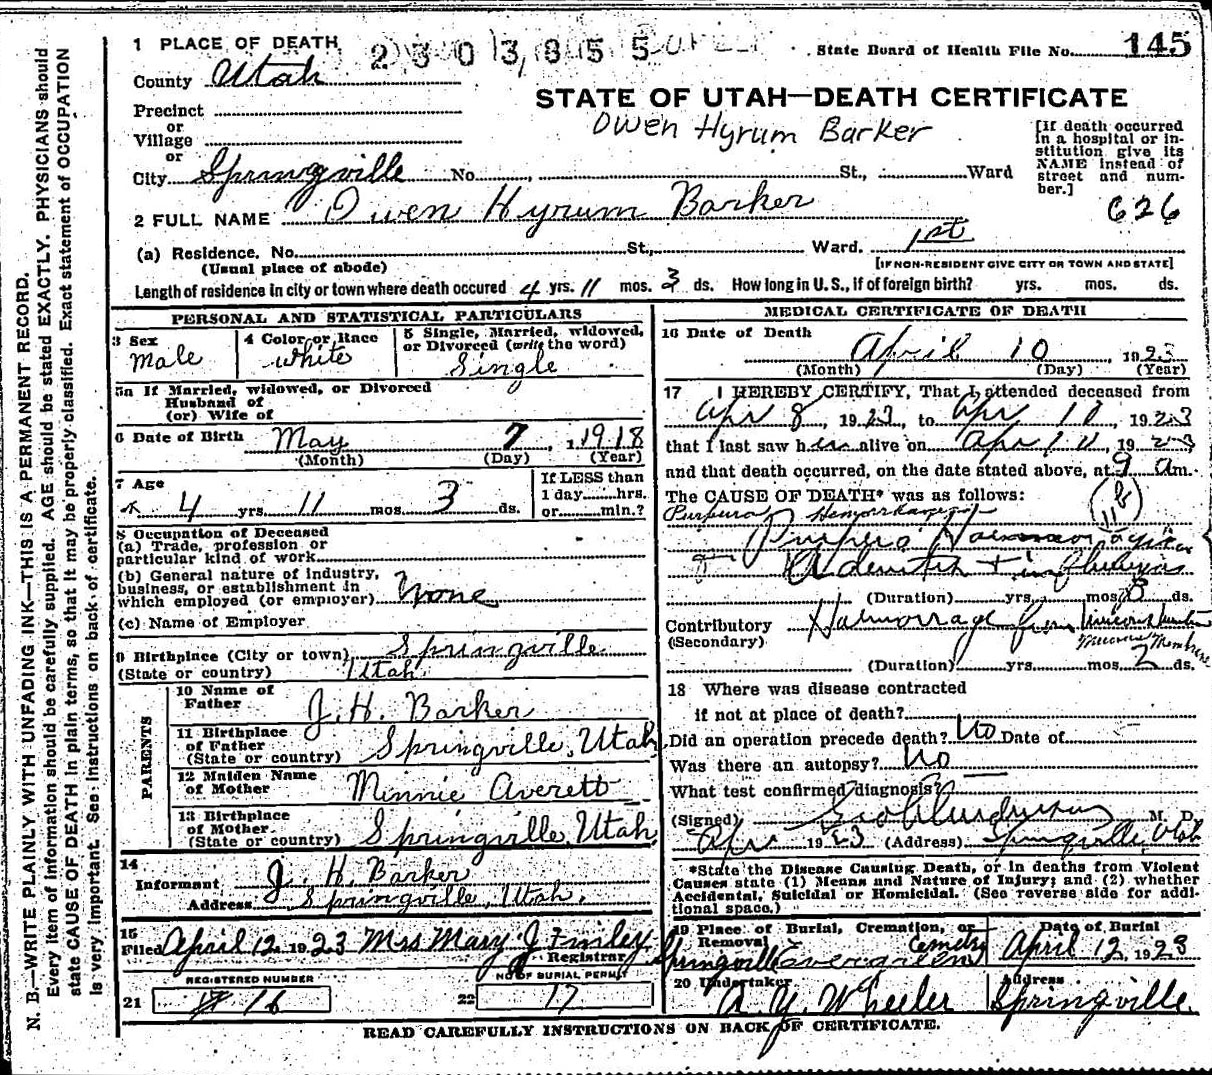 1 PLACE OF DEATH
2303855
State Board of Health File No. 145
County Utah
STATE OF UTAH—DEATH CERTIFICATE
Precinct
or
Village
or
Owen Hyrum Barker
[If death occurred in a hospital or institution give its NAME instead of street and number.]
City Springville No. , St., Ward
626
2 FULL NAME Owen Hyrum Barker
(a) Residence. No. St., Ward. 1st
(Usual place of abode) [IF NON-RESIDENT GIVE CITY OR TOWN AND STATE]
Length of residence in city or town where death occured 4 yrs. 11 mos. 3 ds. How long in U. S., if of foreign birth? yrs. mos. ds.
PERSONAL AND STATISTICAL PARTICULARS
3 Sex Male
4 Color or Race White
5 Single, Married, widowed, or Divorced (write the word) Single
5a If Married, widowed, or Divorced
Husband of
(or) Wife of
6 Date of Birth May 7, 1918
(Month) (Day) (Year)
7 Age 4 yrs. 11 mos. 3 ds.
If LESS than
1 day hrs.
or min.?
8 Occupation of Deceased
(a) Trade, profession or
particular kind of work
(b) General nature of industry,
business, or establishment in
which employed (or employer) None
(c) Name of Employer
9 Birthplace (City or town) Springville
(State or country) Utah
PARENTS
10 Name of Father J. H. Barker
11 Birthplace of Father (State or country) Springville, Utah
12 Maiden Name of Mother Minnie Averett
13 Birthplace of Mother (State or country) Springville, Utah
14
Informant J. H. Barker
Address Springville, Utah.
15
Filed April 12, 1923 Mrs Mary J Finley
Registrar
REGISTERED NUMBER
21 16
NO OF BURIAL PERMIT
22 17
MEDICAL CERTIFICATE OF DEATH
16 Date of Death
April 10, 1923
(Month) (Day) (Year)
17 I HEREBY CERTIFY, That I attended deceased from
Apr 8, 1923, to Apr 10, 1923
that I last saw him alive on Apr 10, 1923
and that death occurred, on the date stated above, at 9 am.
The CAUSE OF DEATH* was as follows:
Purpura Hemorrhagica
Purpura
(Duration) yrs. mos. 8 ds.
Contributory Haemorrage from
(Secondary) Mucous Membrane
(Duration) yrs. mos. 2 ds.
18 Where was disease contracted
if not at place of death?
Did an operation precede death? No Date of
Was there an autopsy? No
What test confirmed diagnosis?
(Signed) M. D.
Apr 1923 (Address) Springville, Utah
*State the Disease Causing Death, or in deaths from Violent
Causes state (1) Means and Nature of Injury; and (2) whether
Accidental, Suicidal or Homicidal. (See reverse side for addi-
tional space.)
19 Place of Burial, Cremation, or Removal
Springville Evergreen Cemetry
Date of Burial
April 12, 1923
20 Undertaker
A. Y. Wheeler
Address
Springville.
READ CAREFULLY INSTRUCTIONS ON BACK OF CERTIFICATE.
N. B.—WRITE PLAINLY WITH UNFADING INK—THIS IS A PERMANENT RECORD.
Every item of information should be carefully supplied. AGE should be stated EXACTLY. PHYSICIANS should
state CAUSE OF DEATH in plain terms, so that it may be properly classified. Exact statement of OCCUPATION
is very important. See Instructions on back of certificate.